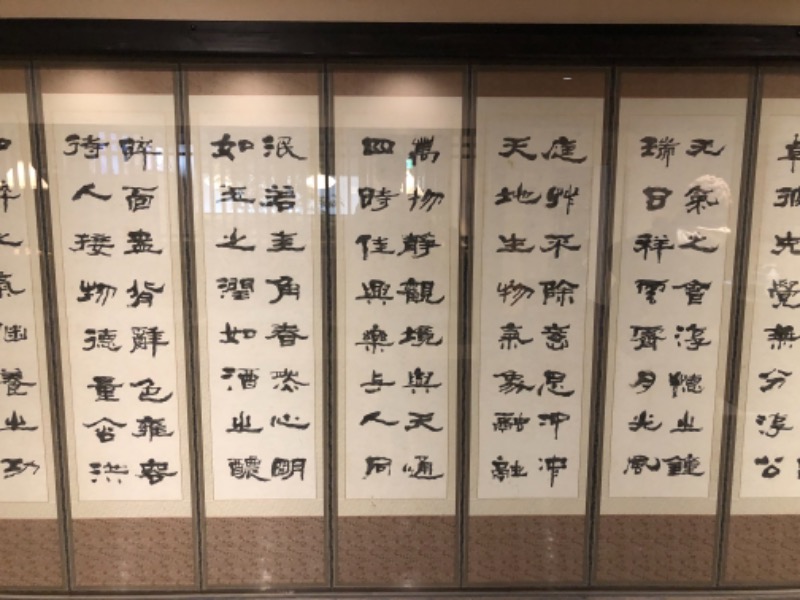 先覺淳公
元氣之會之鍾
瑞日祥雲霽月光風
庭艸不除意思沖沖
天地生物氣象融融
萬物靜觀境與天通
四時佳興樂與人同
泯若圭角春然心
如玉之潤如酒之醲
睟面盎背辭色雍容
待人接物德量含洪
和粹之氣涵養之功